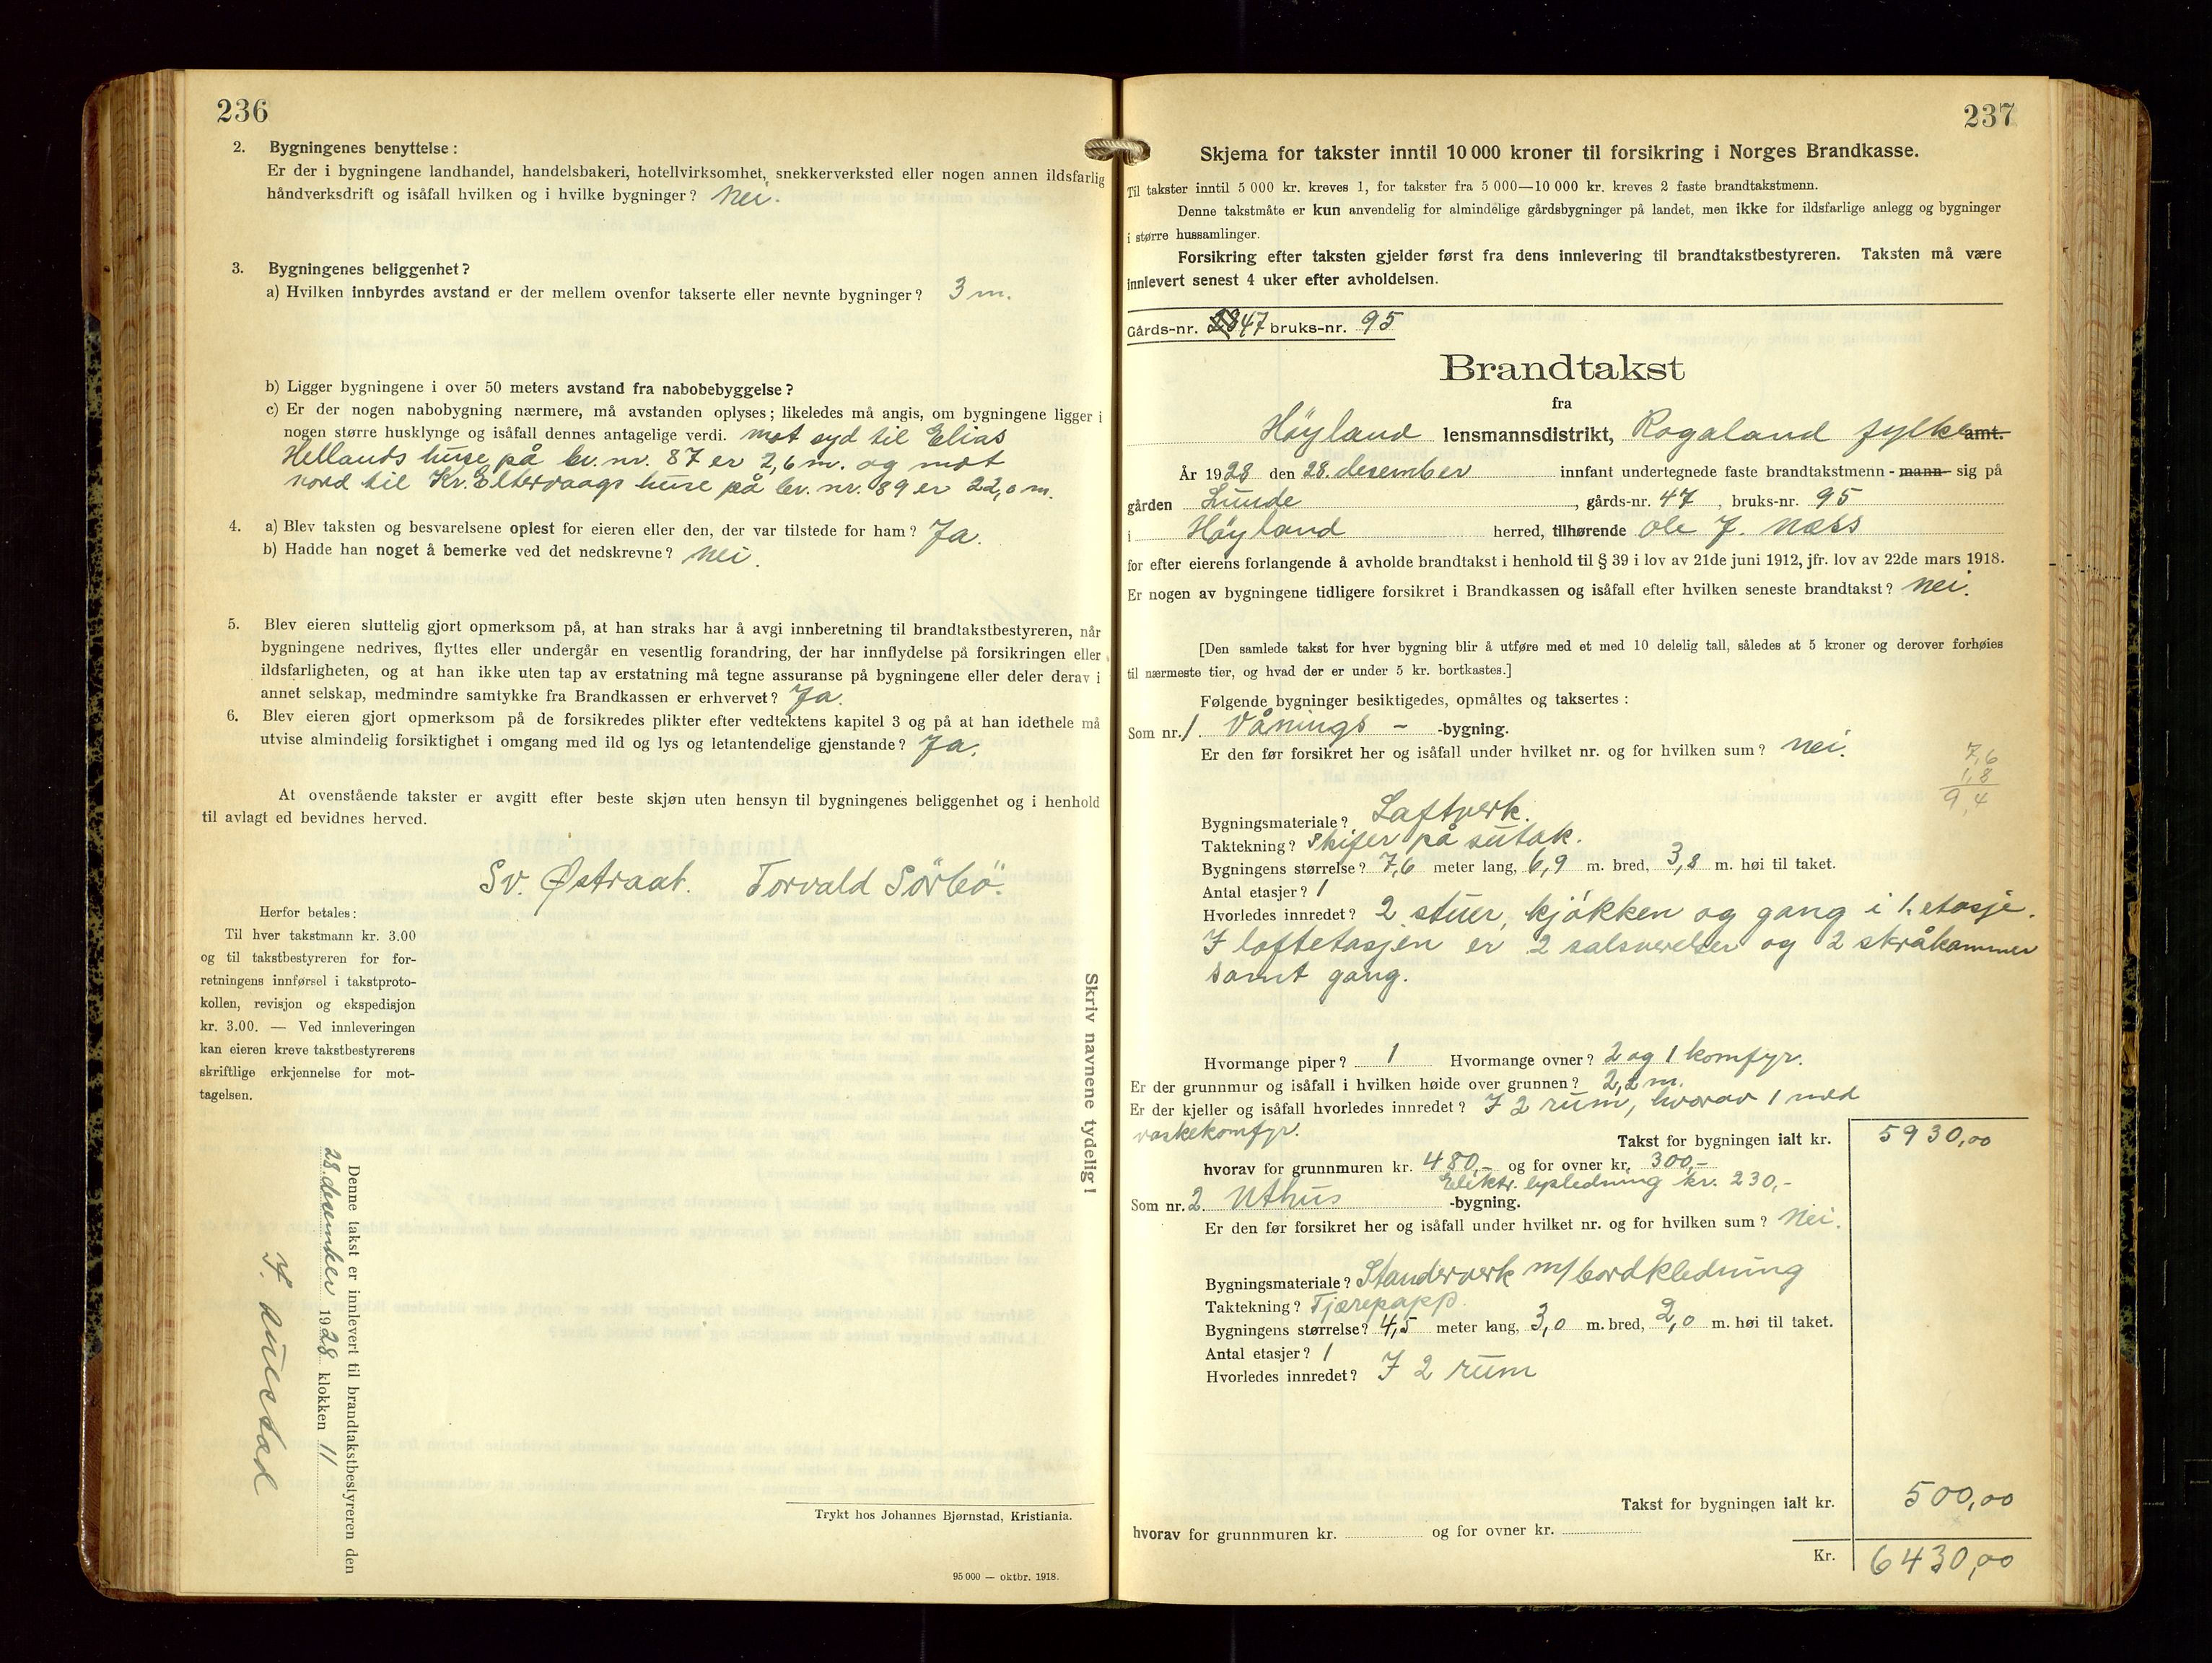 236
2. Bygningenes benyttelse :
Er der i bygningene landhandel, handelsbakeri, hotellvirksomhet, snekkerverksted eller nogen annen ildsfarlig
håndverksdrift og isåfall hvilken og i hvilke bygninger? Nei.
3. Bygningenes beliggenhet?
a) Hvilken innbyrdes avstand er der mellem ovenfor takserte eller nevnte bygninger? 3 m.
b) Ligger bygningene i over 50 meters avstand fra nabobebyggelse?
c) Er der nogen nabobygning nærmere, må avstanden oplyses; likeledes må angis, om bygningene ligger i
nogen større husklynge og isåfall dennes antagelige verdi. mot syd til Elias
Hellands huse på br. nr. 87 er 2,6 m. og mot
nord til Kr. Eltervaags huse på br. nr. 89 er 22,0 m.
4. a) Blev taksten og besvarelsene oplest for eieren eller den, der var tilstede for ham? Ja.
b) Hadde han noget å bemerke ved det nedskrevne? Nei.
5. Blev eieren sluttelig gjort opmerksom på, at han straks har å avgi innberetning til brandtakstbestyreren, når
bygningene nedrives, flyttes eller undergår en vesentlig forandring, der har innflydelse på forsikringen eller
ildsfarligheten, og at han ikke uten tap av erstatning må tegne assuranse på bygningene eller deler derav i
annet selskap, medmindre samtykke fra Brandkassen er erhvervet? Ja.
6. Blev eieren gjort opmerksom på de forsikredes plikter efter vedtektens kapitel 3 og på at han idethele må
utvise almindelig forsiktighet i omgang med ild og lys og letantendelige gjenstande? Ja.
At ovenstående takster er avgitt efter beste skjøn uten hensyn til bygningenes beliggenhet og i henhold
til avlagt ed bevidnes herved.
Sv. Østraat. Torvald Sörbö.
Herfor betales:
Til hver takstmann kr. 3.00
og til takstbestyreren for for-
retningens innførsel i takstproto-
kollen, revisjon og ekspedisjon
kr. 3.00. — Ved innleveringen
kan eieren kreve takstbestyrerens
skriftlige erkjennelse for mot-
tagelsen.
Skriv navnene tydelig!
Denne takst er innlevert til brandtakstbestyreren den
28. desember 1928 klokken 11
Trykt hos Johannes Bjørnstad, Kristiania.
95 000 — oktbr. 1918.
237
Skjema for takster inntil 10 000 kroner til forsikring i Norges Brandkasse.
Til takster inntil 5 000 kr. kreves 1, for takster fra 5 000—10 000 kr. kreves 2 faste brandtakstmenn.
Denne takstmåte er kun anvendelig for almindelige gårdsbygninger på landet, men ikke for ildsfarlige anlegg og bygninger
i større hussamlinger.
Forsikring efter taksten gjelder først fra dens innlevering til brandtakstbestyreren. Taksten må være
innlevert senest 4 uker efter avholdelsen.
Gårds-nr. 47 bruks-nr. 95
Brandtakst
fra
Höyland lensmannsdistrikt, Rogaland fylke amt.
År 1928 den 28. desember innfant undertegnede faste brandtakstmenn - mann sig på
gården Lunde, gårds-nr. 47, bruks-nr. 95
i Höyland herred, tilhørende Ole J. Næss
for efter eierens forlangende å avholde brandtakst i henhold til § 39 i lov av 21de juni 1912, jfr. lov av 22de mars 1918.
Er nogen av bygningene tidligere forsikret i Brandkassen og isåfall efter hvilken seneste brandtakst? Nei.
[Den samlede takst for hver bygning blir å utføre med et med 10 delelig tall, således at 5 kroner og derover forhøies
til nærmeste tier, og hvad der er under 5 kr. bortkastes.]
Følgende bygninger besiktigedes, opmåltes og taksertes :
Som nr. 1 Vånings - -bygning.
Er den før forsikret her og isåfall under hvilket nr. og for hvilken sum? Nei.
7,6
1,8
9,4
Bygningsmateriale? Laftverk.
Taktekning? Skifer på sutak.
Bygningens størrelse? 7,6 meter lang, 6,9 m. bred, 3,8 m. høi til taket.
Antal etasjer? 1
Hvorledes innredet? 2 stuer, kjökken og gang i 1. etasje.
I loftetasjen er 2 salsverelser og 2 skråkammer
samt gang.
Hvormange piper? 1 Hvormange ovner? 2 og 1 komfyr.
Er der grunnmur og isåfall i hvilken høide over grunnen? 2,2 m.
Er der kjeller og isåfall hvorledes innredet? I 2 rum, hvorav 1 med
vaskekomfyr.
Takst for bygningen ialt kr. 5930,00
hvorav for grunnmuren kr. 480,- og for ovner kr. 300,-
Elektr. lysledning kr. 230,-
Som nr. 2 Uthus -bygning.
Er den før forsikret her og isåfall under hvilket nr. og for hvilken sum? Nei.
Bygningsmateriale? Standerverk m/ bordkledning
Taktekning? Tjærepapp.
Bygningens størrelse? 4,5 meter lang, 3,0 m. bred, 2,0 m. høi til taket.
Antal etasjer? 1
Hvorledes innredet? I 2 rum
Takst for bygningen ialt kr. 500,00
hvorav for grunnmuren kr. og for ovner kr.
Kr. 6430,00